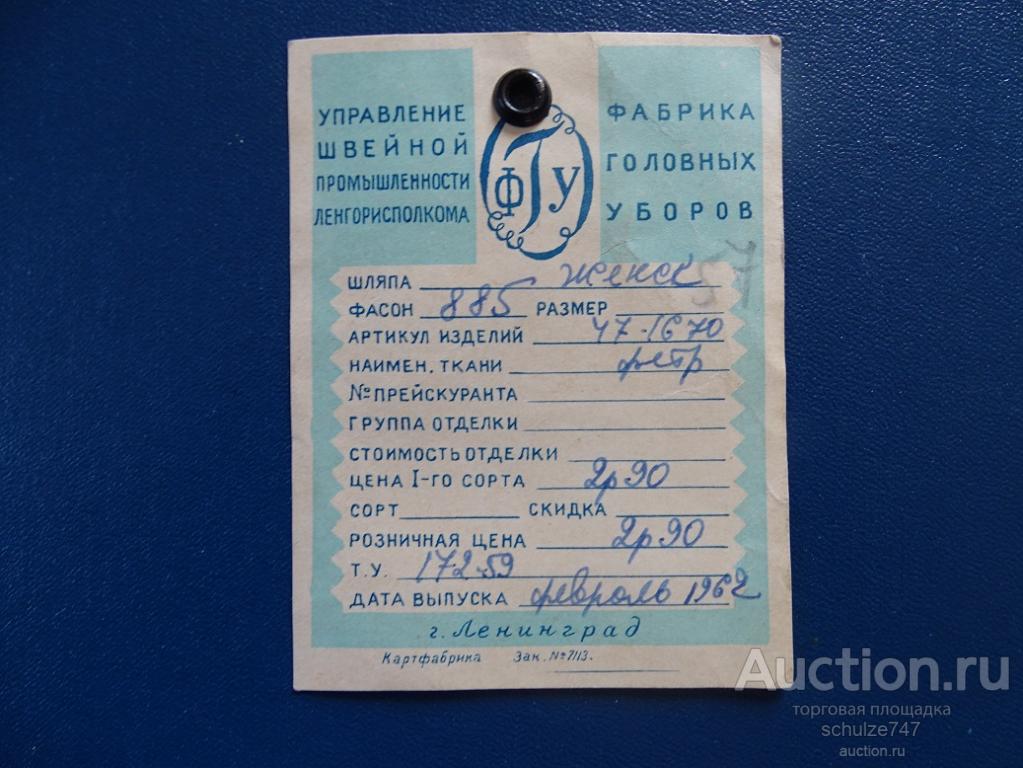 УПРАВЛЕНИЕ
ШВЕЙНОЙ
ПРОМЫШЛЕННОСТИ
ЛЕНГОРИСПОЛКОМА
ФГУ
ФАБРИКА
ГОЛОВНЫХ
УБОРОВ
57
ШЛЯПА женск
ФАСОН 885 РАЗМЕР
АРТИКУЛ ИЗДЕЛИЙ 47-1670
НАИМЕН. ТКАНИ фетр
№ ПРЕЙСКУРАНТА
ГРУППА ОТДЕЛКИ
СТОИМОСТЬ ОТДЕЛКИ
ЦЕНА I-ГО СОРТА 2р90
СОРТ СКИДКА
РОЗНИЧНАЯ ЦЕНА 2р90
Т.У. 172-59
ДАТА ВЫПУСКА февроль 1962
г. Ленинград
Картфабрика Зак. № 7113.
Auction.ru
торговая площадка
schulze747
auction.ru